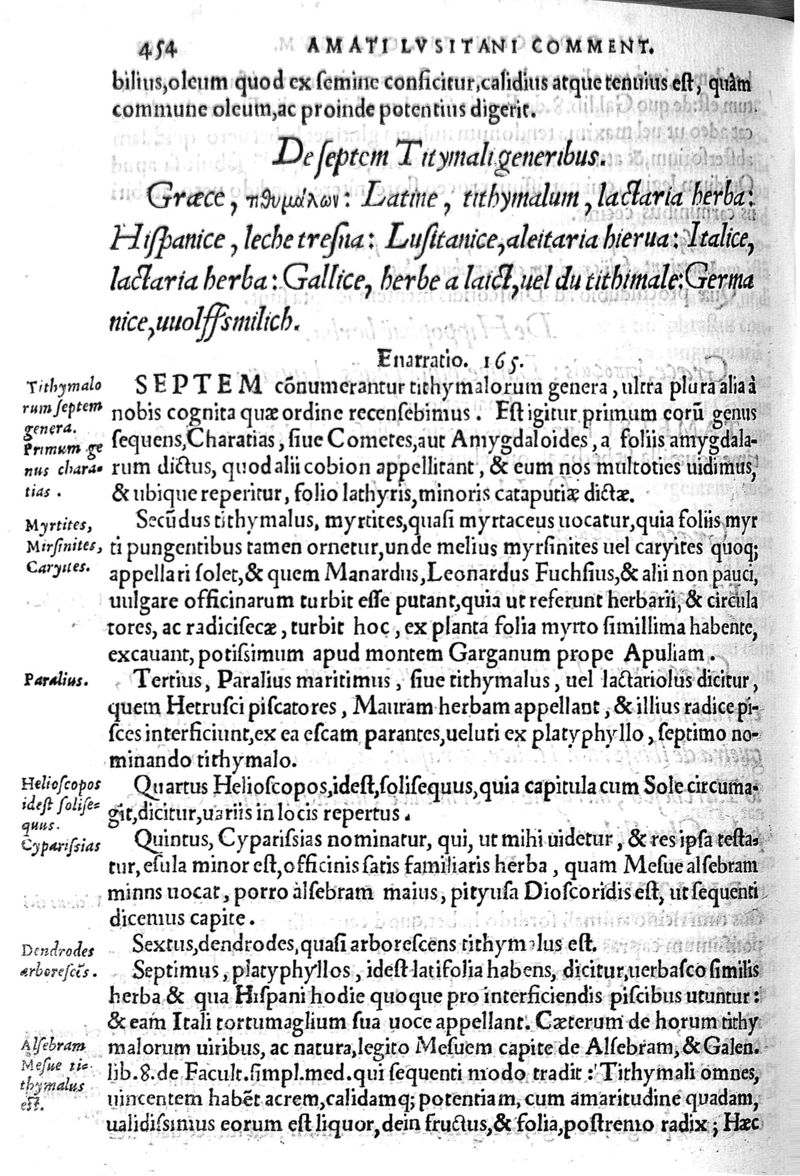 454 AMATI LVSITANI COMMENT.
bilius,oleum quod ex semine conficitur,calidius atque tenuius est, quàm
commune oleum,ac proinde potentius digerit.
De septem Titymali generibus.
Græce, τιθυμάλων: Latine, tithymalum, lactaria herba:
Hispanice, leche tresna: Lusitanice,aleitaria hierua: Italice,
lactaria herba: Gallice, herbe a laict,uel du tithimale:Germa
nice,uuolffsmilich.
Enarratio. 165.
Tithymalo
rum septem
genera.
Primum ge
nus chara-
tias.
SEPTEM cõnumerantur tithymalorum genera, ultra plura alia à
nobis cognita quæ ordine recensebimus. Est igitur primum eorũ genus
sequens,Charatias, siue Cometes,aut Amygdaloides, a foliis amygdala-
rum dictus, quod alii cobion appellitant, & eum nos multoties uidimus,
& ubique reperitur, folio lathyris,minoris cataputiæ dictæ.
Myrtites,
Mirsinites,
Caryites.
Secũdus tithymalus, myrtites,quasi myrtaceus uocatur,quia foliis myr
ti pungentibus tamen ornetur,unde melius myrsinites uel caryites quoq;
appellari solet,& quem Manardus,Leonardus Fuchsius,& alii non pauci,
uulgare officinarum turbit esse putant,quia ut referunt herbarii, & circula
tores, ac radicisecæ, turbit hoc, ex planta folia myrto simillima habente,
excauant, potissimum apud montem Garganum prope Apuliam.
Paralius.
Tertius, Paralius maritimus, siue tithymalus, uel lactariolus dicitur,
quem Hetrusci piscatores, Mauram herbam appellant, & illius radice pi-
sces interficiunt,ex ea escam parantes,ueluti ex platyphyllo, septimo no-
minando tithymalo.
Helioscopos
idest solise-
quus.
Quartus Helioscopos,idest,solisequus,quia capitula cum Sole circuma-
git,dicitur,uariis in locis repertus.
Cyparissias
Quintus, Cyparissias nominatur, qui, ut mihi uidetur, & res ipsa testa-
tur,esula minor est,officinis satis familiaris herba, quam Mesue alsebram
minns uocat, porro àlsebram maius, pityusa Dioscoridis est, ut sequenti
dicemus capite.
Dendrodes
arborescẽs.
Sextus,dendrodes,quasi arborescens tithymalus est.
Septimus, platyphyllos, idest latifolia habens, dicitur,uerbasco similis
herba & qua Hispani hodie quoque pro interficiendis piscibus utuntur:
& eam Itali tortumaglium sua uoce appellant. Cæterum de horum tithy
Alsebram
Mesue tit-
thymalus
est.
malorum uiribus, ac natura,legito Mesuem capite de Alsebram, & Galen.
lib.8.de Facult.simpl.med.qui sequenti modo tradit: Tithymali omnes,
uincentem habẽt acrem,calidamq; potentiam, cum amaritudine quadam,
ualidissimus eorum est liquor, dein fructus,& folia,postremo radix; Hæc